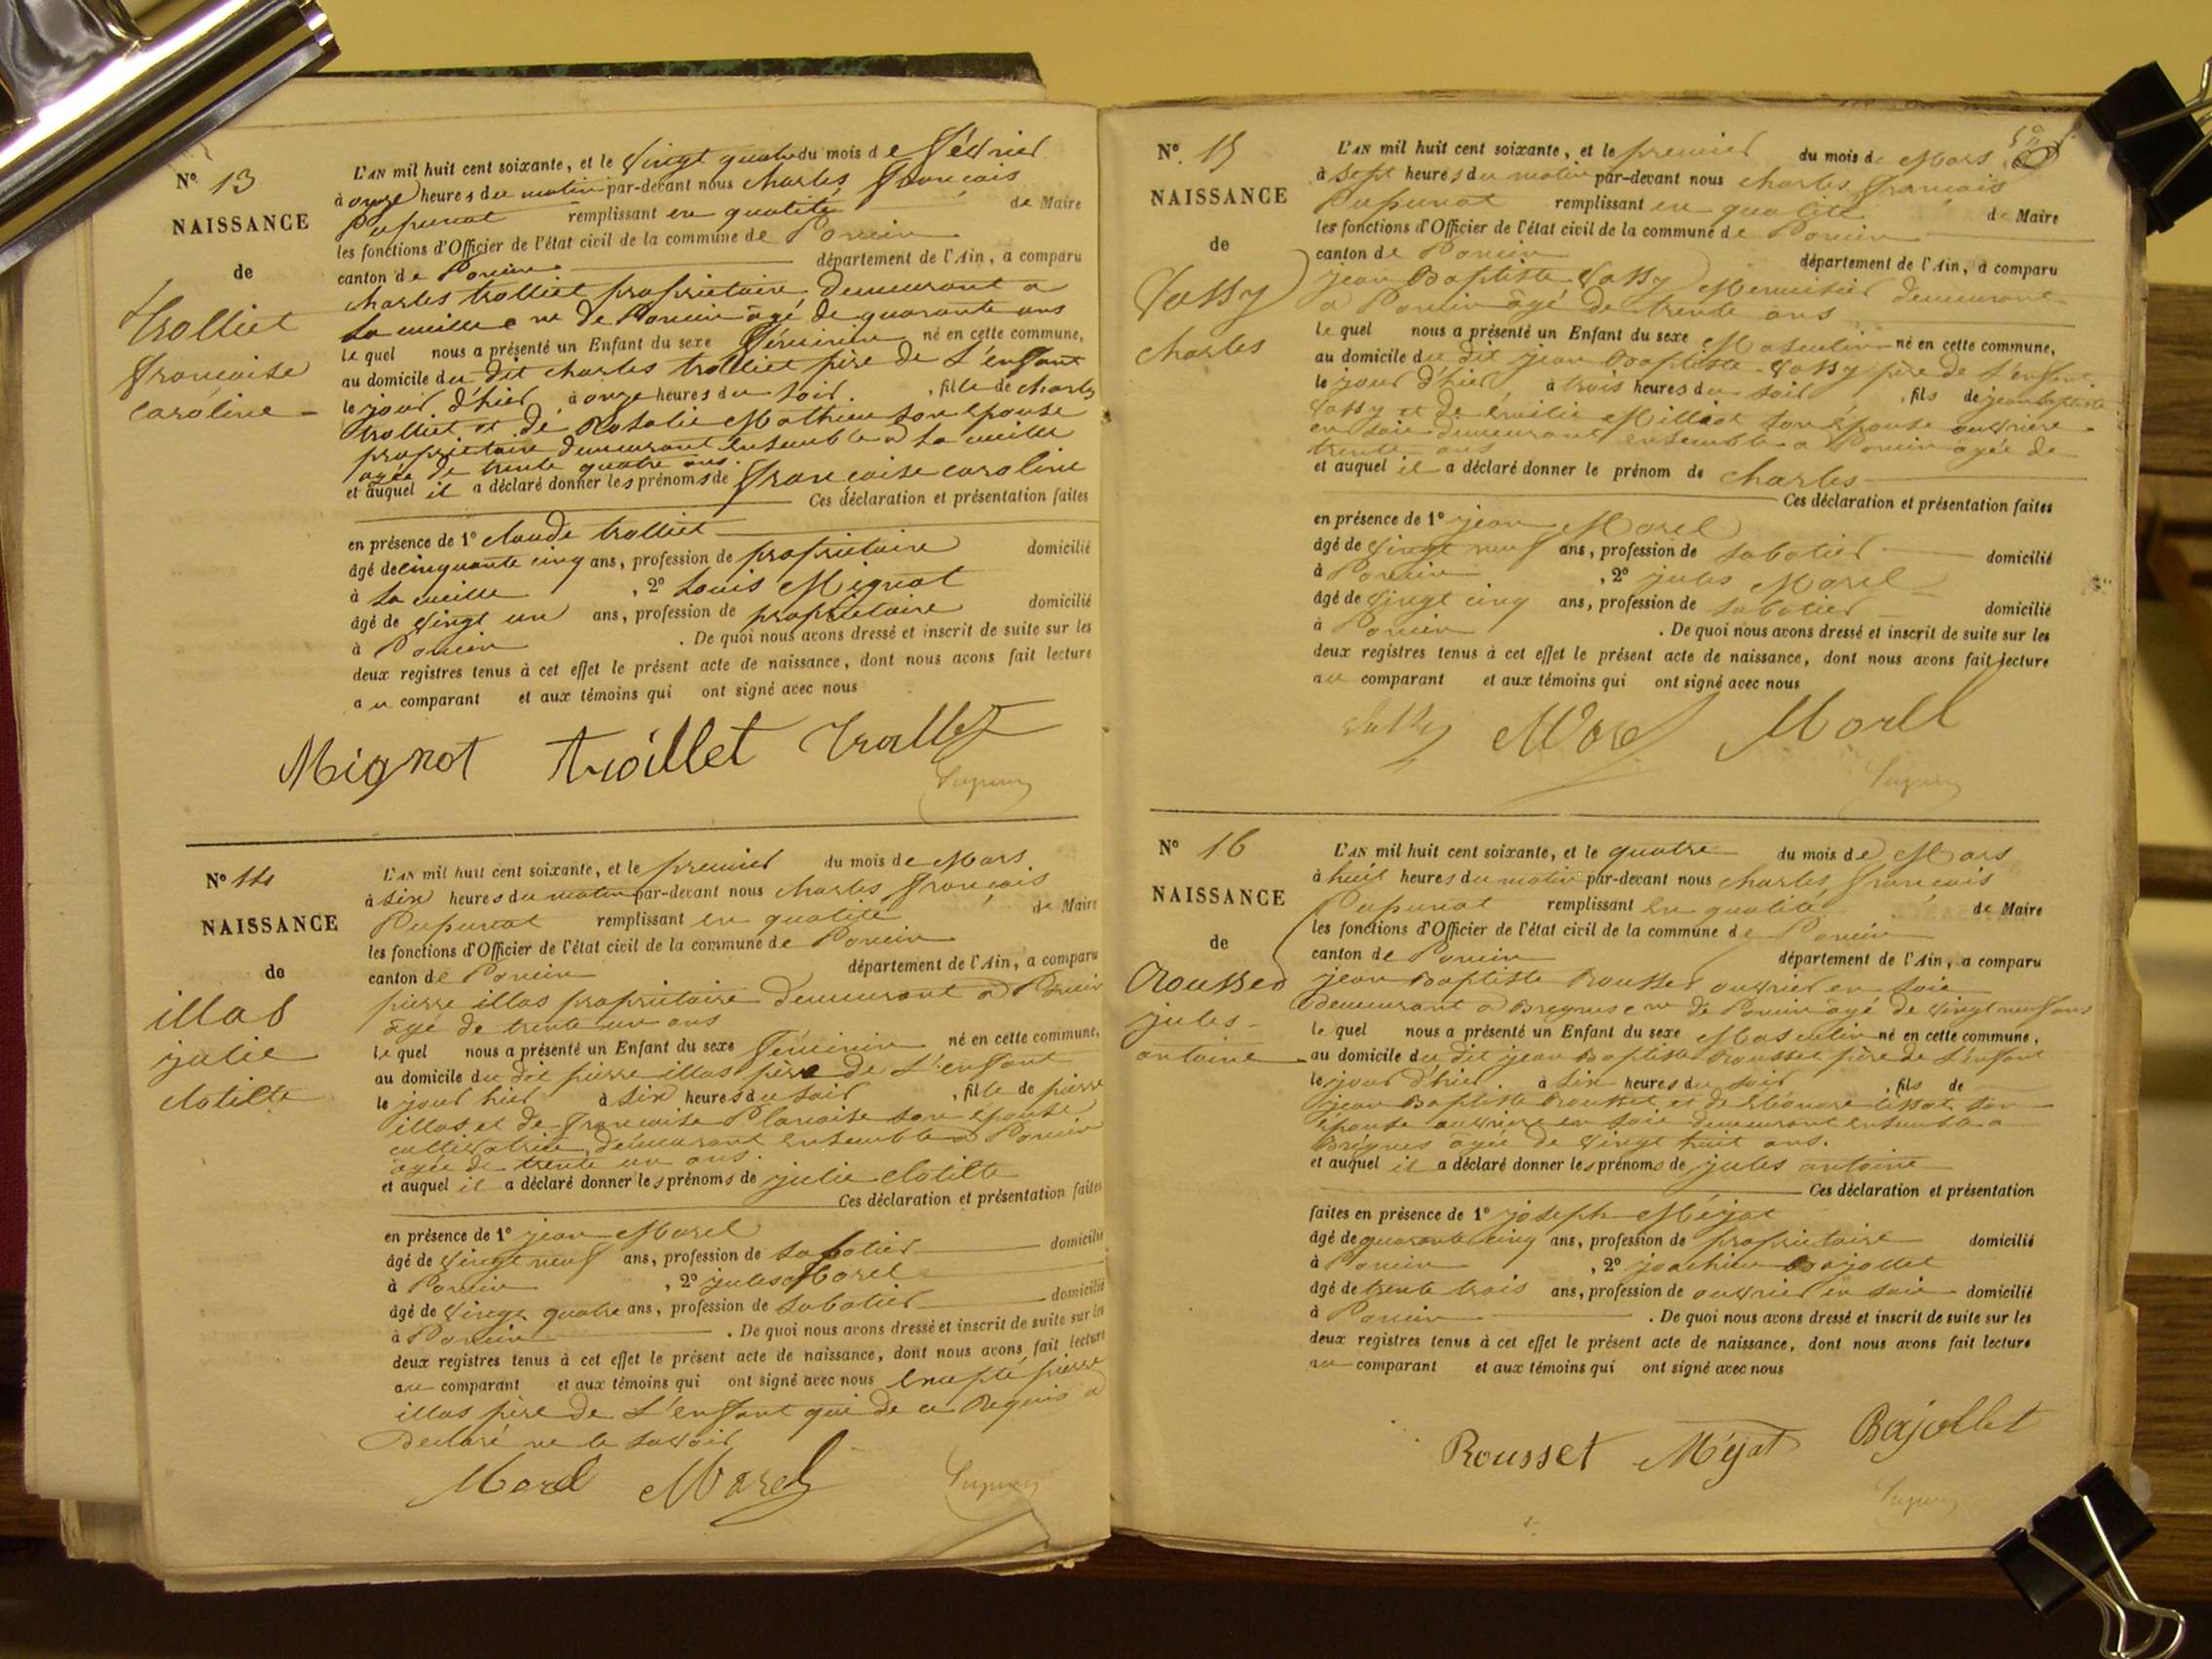 Nº 13
NAISSANCE
de
Trolliet
françoise
caroline
L'AN mil huit cent soixante, et le vingt quatre du mois de février
à onze heures du matin par-devant nous charles françois
Pupunat remplissant en qualité de Maire
les fonctions d'Officier de l'état civil de la commune de Poncin
canton de Poncin département de l'Ain, a comparu
charles trolliet propriétaire demeurant a
la cueille cne de Poncin âgé de quarante ans
le quel nous a présenté un Enfant du sexe féminin né en cette commune,
au domicile du dit charles trolliet père de L'enfant
le jour d'hier à onze heures du soir. , fille de charles
trolliet et de Rosalie Mathieu son épouse
propriétaire demeurant ensemble a La cueille
agée de trente quatre ans.
et auquel il a déclaré donner les prénoms de françoise caroline
Ces déclaration et présentation faites
en présence de 1º claude trolliet
âgé de cinquante cinq ans, profession de propriétaire domicilié
à La cueille , 2º Louis Mignot
âgé de vingt un ans, profession de propriétaire domicilié
à Poncin . De quoi nous avons dressé et inscrit de suite sur les
deux registres tenus à cet effet le présent acte de naissance, dont nous avons fait lecture
au comparant et aux témoins qui ont signé avec nous
Mignot troillet Trolliet
Nº 14
NAISSANCE
de
illas
julie
clotilte
L'AN mil huit cent soixante, et le premier du mois de Mars
à six heures du matin par-devant nous charles françois
Pupunat remplissant en qualité de Maire
les fonctions d'Officier de l'état civil de la commune de Poncin
canton de Poncin département de l'Ain, a comparu
pierre illas propriétaire demeurant a Poncin
âgé de trente un ans
le quel nous a présenté un Enfant du sexe féminin né en cette commune,
au domicile du dit pierre illas père de L'enfant
le jour hier à six heures du soir , fille de pierre
illas et de françoise Planaise son épouse
cultivatrice, demeurant ensemble a Poncin
agée de trente un ans.
et auquel il a déclaré donner les prénoms de julie clotilte
Ces déclaration et présentation faites
en présence de 1º jean Morel
âgé de vingt neuf ans, profession de sabotier domicilié
à Poncin , 2º jules Morel
âgé de vingt quatre ans, profession de sabotier domicilié
à Poncin . De quoi nous avons dressé et inscrit de suite sur les
deux registres tenus à cet effet le présent acte de naissance, dont nous avons fait lecture
au comparant et aux témoins qui ont signé avec nous excepté pierre
illas père de L'enfant qui de ce Requis a
Déclaré ne le savoir
Morel Morel
Nº 15
NAISSANCE
de
Vassy
charles
L'AN mil huit cent soixante, et le premier du mois de Mars
à sept heures du matin par-devant nous charles françois
Pupunat remplissant en qualité de Maire
les fonctions d'Officier de l'état civil de la commune de Poncin
canton de Poncin département de l'Ain, a comparu
jean Baptiste Vassy Menuisier demeurant
a Poncin âgé de trente ans
le quel nous a présenté un Enfant du sexe Masculin né en cette commune,
au domicile du dit jean Baptiste Vassy père de L'enfant
le jour d'hier à trois heures du soir , fils de jean baptiste
Vassy et de émilie Milliat son épouse ouvrière
en soie demeurant ensemble a Poncin agée de
trente ans
et auquel il a déclaré donner le prénom de charles
Ces déclaration et présentation faites
en présence de 1º jean Morel
âgé de vingt neuf ans, profession de sabotier domicilié
à Poncin , 2º jules Morel
âgé de vingt cinq ans, profession de sabotier domicilié
à Poncin . De quoi nous avons dressé et inscrit de suite sur les
deux registres tenus à cet effet le présent acte de naissance, dont nous avons fait lecture
au comparant et aux témoins qui ont signé avec nous
Vassy Morel Morel
Nº 16
NAISSANCE
de
Rousset
jules
antoine
L'AN mil huit cent soixante, et le quatre du mois de Mars
à huit heures du matin par-devant nous charles françois
Pupunat remplissant en qualité de Maire
les fonctions d'Officier de l'état civil de la commune de Poncin
canton de Poncin département de l'Ain, a comparu
jean Baptiste Rousset ouvrier en soie
demeurant a Bregnus cne de Poncin âgé de vingt neuf ans
le quel nous a présenté un Enfant du sexe Masculin né en cette commune,
au domicile du dit jean Baptiste Rousset père de L'enfant
le jour d'hier. à six heures du soir , fils de
jean Baptiste Rousset et de Eléonore tissot son
épouse ouvrière en soie demeurant ensemble a
Brégnus agée de vingt huit ans.
et auquel il a déclaré donner les prénoms de jules antoine
Ces déclaration et présentation
faites en présence de 1º joseph Méjat
âgé de quarante cinq ans, profession de propriétaire domicilié
à Poncin , 2º joachim Bajollet
âgé de trente trois ans, profession de ouvrier en soie domicilié
à Poncin . De quoi nous avons dressé et inscrit de suite sur les
deux registres tenus à cet effet le présent acte de naissance, dont nous avons fait lecture
au comparant et aux témoins qui ont signé avec nous
Rousset Méjat Bajollet